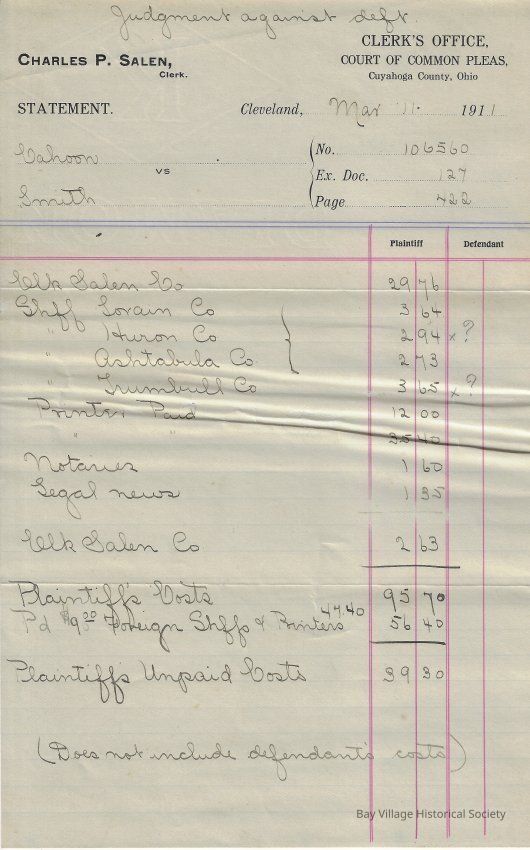 Judgment against deft.
CLERK'S OFFICE,
CHARLES P. SALEN,
Clerk.
COURT OF COMMON PLEAS,
Cuyahoga County, Ohio
STATEMENT. Cleveland, Mar 11. 1911
Cahoon
vs
Smith
No. 106560
Ex. Doc. 127
Page 422
Plaintiff Defendant
Clk Salen Co 29 76
Shff Lorain Co 3 64
" Huron Co 2 94 x ?
" Ashtabula Co 2 73
" Trumbull Co 3 65 x ?
Printer Paid 12 00
" " 35 40
Notaries 1 60
Legal news 1 35
Clk Salen Co 2 63
Plaintiff's Costs 95 70
Pd $9.00 Foreign Shffs & Printers 47.40 56 40
Plaintiff's Unpaid Costs 39 30
(Does not include defendant's costs)
Bay Village Historical Society